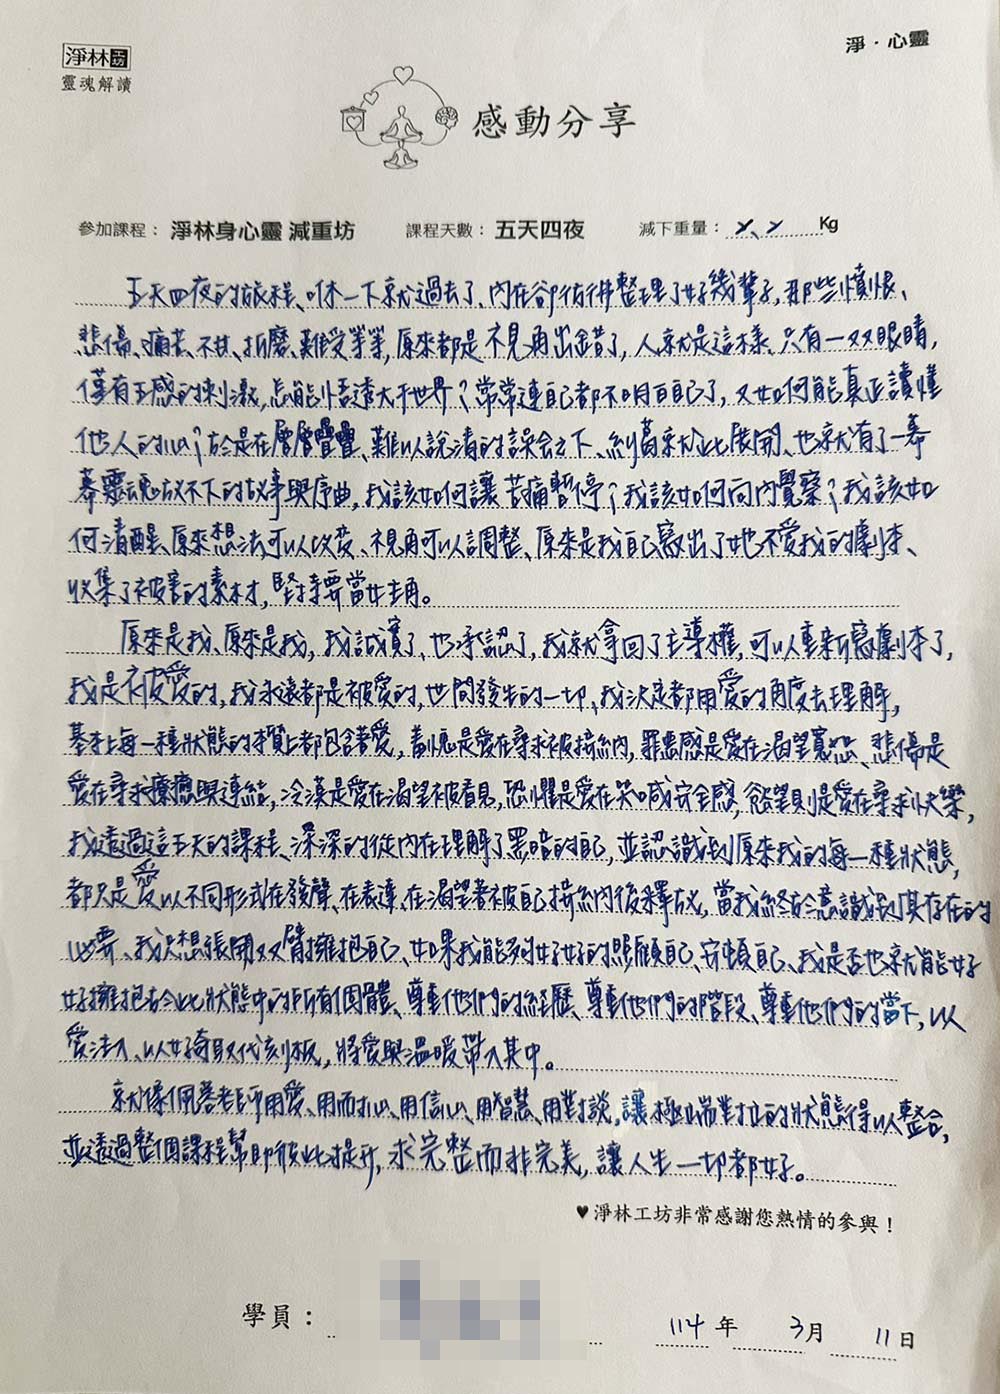 淨林工坊
靈魂解讀
淨·心靈
感動分享
參加課程： 淨林身心靈 減重坊 課程天數： 五天四夜 減下重量： X、X Kg
五天四夜的旅程、咻一下就過去了、內在卻彷彿整理了好幾輩子，那些憤恨、
悲傷、痛苦、不甘、折磨、難受等等，原來都是視角出錯了，人就是這樣。只有一双眼睛，
僅有五感的刺激，怎能悟透大千世界？常常連自己都不明白自己了，又如何能真正讀懂
他人的心？於是在層層疊疊、難以說清的誤会之下、糾葛就此展開、也就有了一幕
幕靈魂放不下的故事與序曲，我該如何讓苦痛暫停？我該如何向內覺察？我該如
何清醒、原來想法可以改變、視角可以調整、原來是我自己寫出了她不愛我的劇本、
收集了被害的素材，堅持要當女主角。
原來是我、原來是我，我誠實了、也承認了，我就拿回了主導權，可以重新寫劇本了，
我是被愛的，我永遠都是被愛的，世間發生的一切、我決定都用愛的角度去理解，
基本上每一種狀態的本質上都包含著愛，羞愧是愛在尋求被接納，罪惡感是愛在渴望寬恕、悲傷是
愛在尋求療癒與連結，冷漠是愛在渴望被看見，恐懼是愛在哭喊安全感，慾望則是愛在尋求快樂，
我透過這五天的課程、深深的從內在理解了黑暗的自己，並認識到原來我的每一種狀態，
都只是愛以不同形式在發聲、在表達、在渴望著被自己接納後釋放，當我終於意識到其存在的
必要、我只想張開双臂擁抱自己、如果我能夠好好的照顧自己、安頓自己、我是否也就能好
好擁抱於此狀態中的所有個體、尊重他們的經歷、尊重他們的階段、尊重他們的當下，以
愛注入、以好奇取代刻板，將愛與溫暖帶入其中。
就像佩蓉老師用愛、用耐心、用信心、用智慧、用對談，讓極端對立的狀態得以整合，
並透過整個課程幫助彼此提升，求完整而非完美，讓人生一切都好。
♥淨林工坊非常感謝您熱情的參與！
學員：
114 年 3月 11日